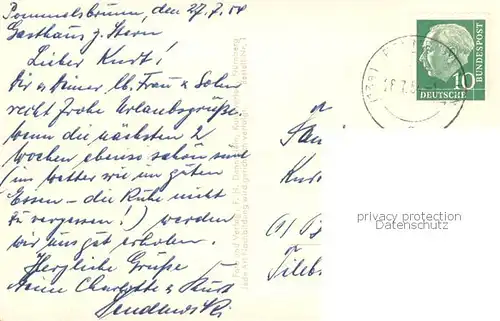 Pommelsbrunn, den 27.7.58
Gasthaus z. Stern
Lieber Kurt!
Dir & Deiner lb. Frau & Sohn
recht frohe Urlaubsgrüße,
wenn die nächsten 2
Wochen ebenso schön sind
(im Wetter wie im guten
Essen - die Ruhe nicht
zu vergessen!) werden
wir uns gut erholen.
Herzliche Grüße
Deine Charlotte & Kurt
10
DEUTSCHE
BUNDESPOST
privacy protection
Datenschutz